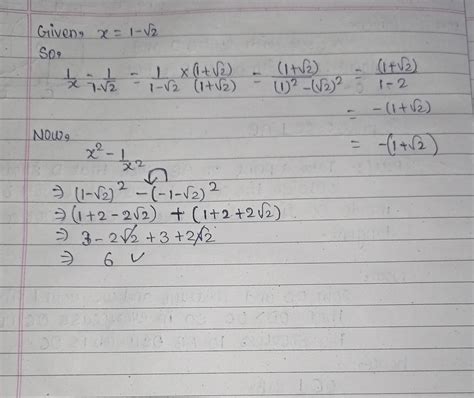 Given, x = 1-√2
So,
1/x = 1/(1-√2) = 1/(1-√2) × (1+√2)/(1+√2) = (1+√2)/((1)² - (√2)²) = (1+√2)/(1-2)
= -(1+√2)
= -(1+√2)
Now,
x² - 1/x²
⇒ (1-√2)² - (-1-√2)²
⇒ (1+2-2√2) + (1+2+2√2)
⇒ 3 - 2√2 + 3 + 2√2
⇒ 6 ✓